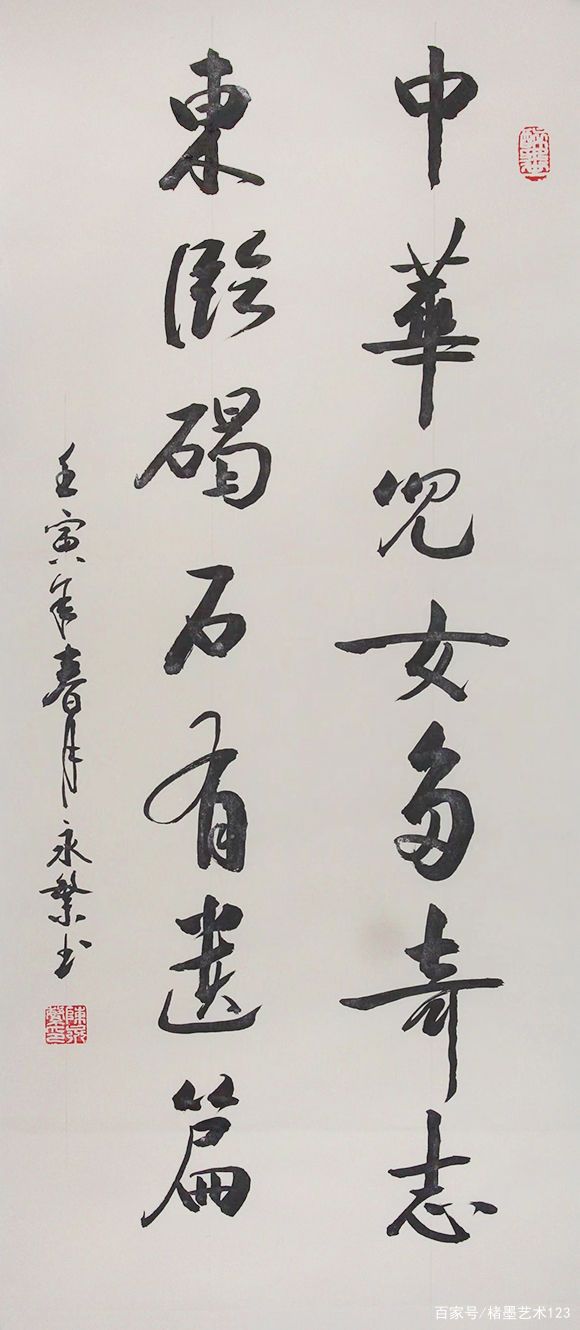 中華兒女多奇志
東臨碣石有遺篇
壬寅年春月永繁书
百家号/楮墨艺术123